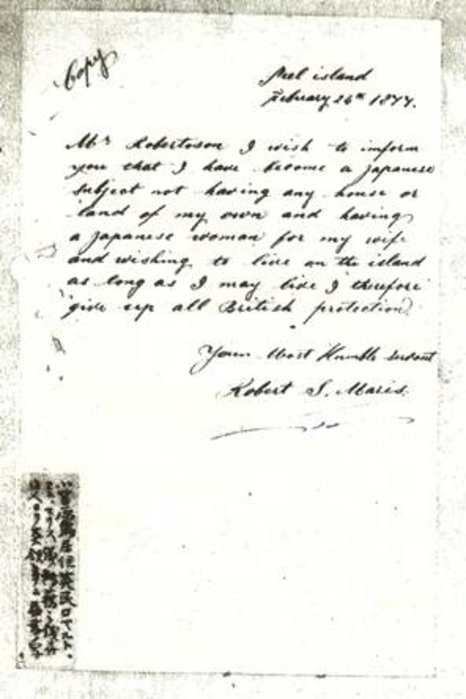 Copy
Peel island
February 26th 1877.
Mr Robertoson I wish to imform
you that I have become a Japanese
subject not having any house or
land of my own and having
a Japanese woman for my wife
and wishing to live on the island
as long as I may live I therefore
give up all British protection.
Your Most Humble servant
Robert S. Maris.
小笠原島居住英民ロベルト、